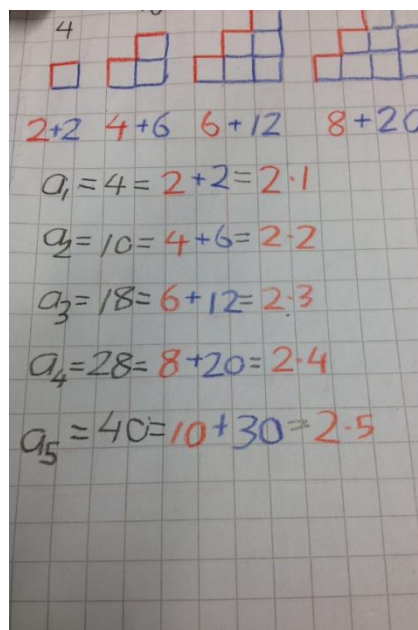 4
2+2 4+6 6+12 8+20
a₁=4=2+2=2·1
a₂=10=4+6=2·2
a₃=18=6+12=2·3
a₄=28=8+20=2·4
a₅=40=10+30=2·5